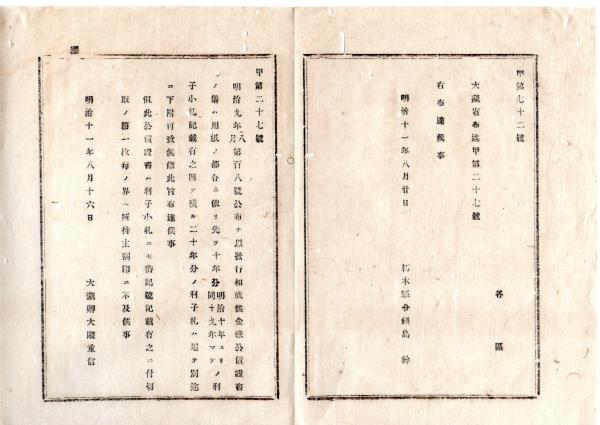 甲第七十二號
各區
大藏省布達甲第二十七號
右布達候事
明治十一年八月廿日
栃木縣令鍋島幹
甲第二十七號
明治九年八月第百八號公布ヲ以發行相成候金祿公債證書
ノ儀ハ用紙ノ都合ニ依リ先ヲ十年分明治十年ヨリ同十九年マテノ利
子小札記載有之因テ殘ル二十年分ノ利子札ハ追テ別途
ニ下附可致候條此旨布達候事
但此公債證書ハ利子小札ニモ番記號記載有之ニ付切
取ノ節一枚每ノ界ヘ所持主割印ニ不及候事
明治十一年八月十六日
大藏卿大隈重信